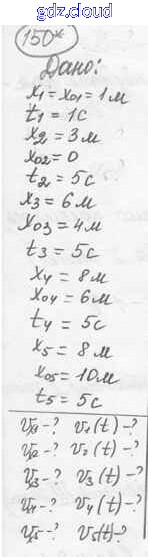 gdz.cloud
150*
Дано:
x1 = x01 = 1 м
t1 = 1с
x2 = 3 м
x02 = 0
t2 = 5с
x3 = 6 м
x03 = 4 м
t3 = 5с
x4 = 8 м
x04 = 6 м
t4 = 5с
x5 = 8 м
x05 = 10 м
t5 = 5с
V1-? V1(t)-?
V2-? V2(t)-?
V3-? V3(t)-?
V4-? V4(t)-?
V5-? V5(t)-?